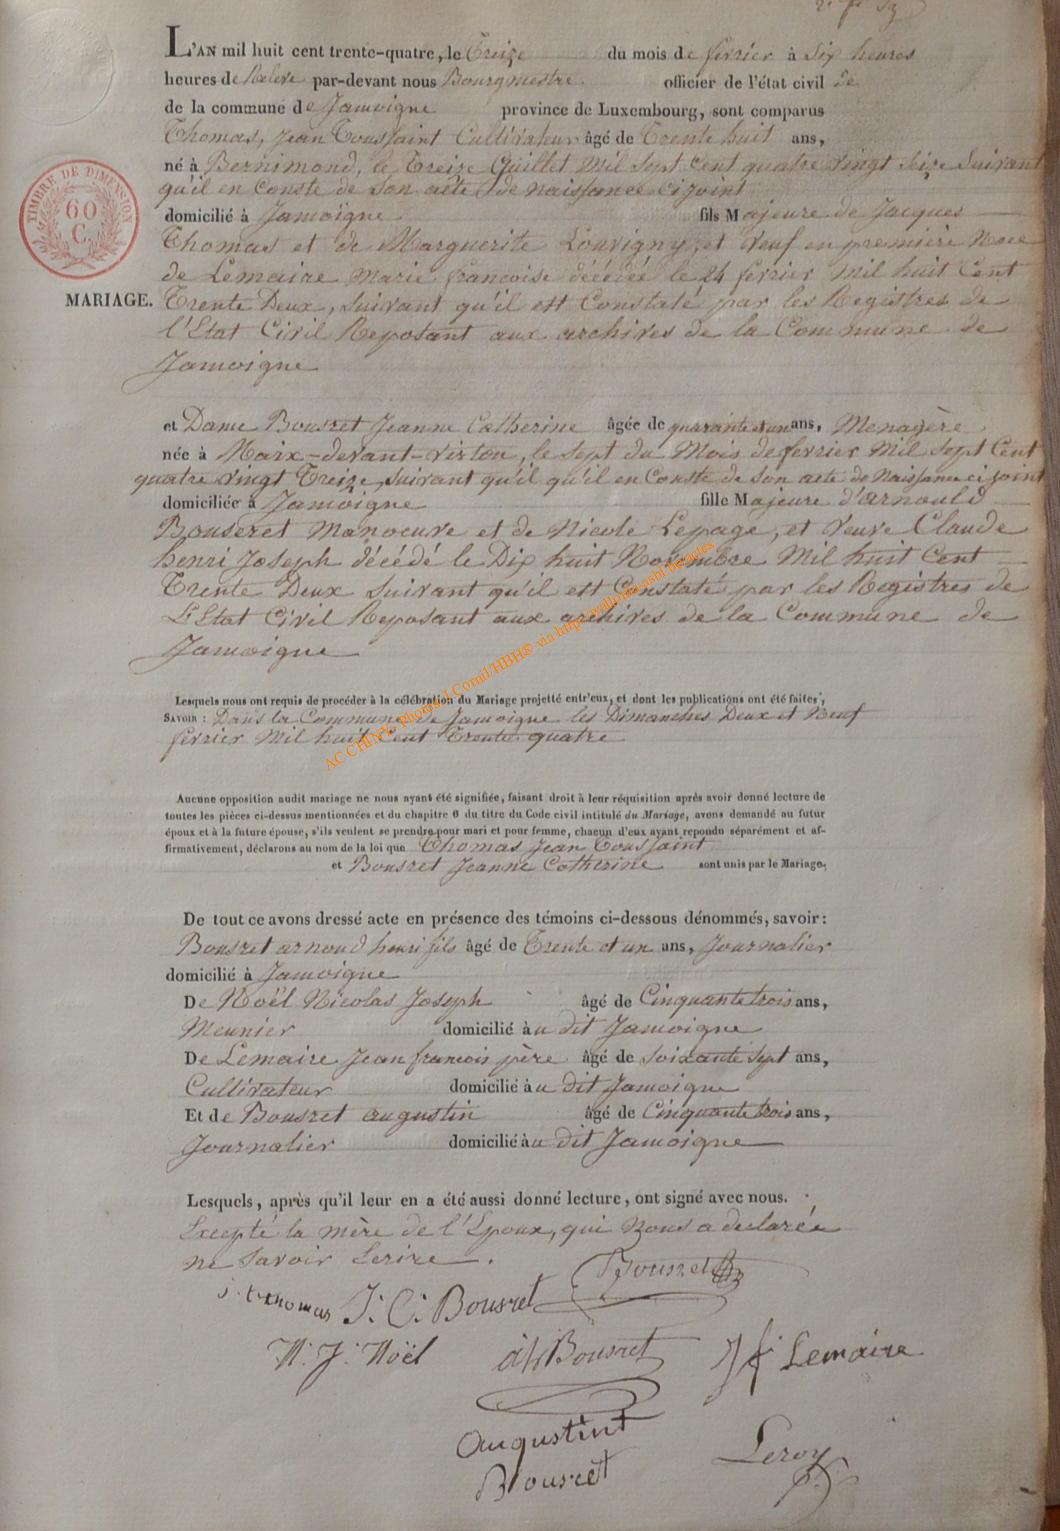 L'AN mil huit cent trente-quatre, le Treize du mois de février à Six heures
heures de Releve par-devant nous Bourgmestre officier de l'état civil de
de la commune de Jamoigne province de Luxembourg, sont comparus
Thomas, Jean Toussaint Cultivateur âgé de Trente huit ans,
né à Bernimond, le Treize Juillet Mil Sept Cent quatre vingt Seize Suivant
qu'il en Conste de Son acte de naissance Cijoint
domicilié à Jamoigne fils Majeure de Jacques
Thomas et de Marguerite Louvigny, et Veuf en première Noce
de Lemaire Marie francoise décédée le 24 février Mil huit Cent
MARIAGE. Trente Deux, Suivant qu'il est Constaté par les Registres de
l'Etat Civil Reposant aux archives de la Commune de
Jamoigne
et Dame Bousret Jeanne Catherine âgée de quarante et un ans, Menagère
née à Maix-devant-virton, le sept du Mois de fevrier Mil Sept Cent
quatre vingt Treize, Suivant qu'il qu'il en Conste de Son acte de Naissance ci joint
domiciliée à Jamoigne fille Majeure d'arnould
Bouseret Manoeuvre et de Nicole Lepage, et Veuve Claude
henri Joseph décédé le Dix huit Novembre Mil huit Cent
Trente Deux Suivant qu'il est Constaté par les Registres de
L'Etat Civil Reposant aux archives de la Commune de
Jamoigne
Lesquels nous ont requis de procéder à la célébration du Mariage projetté entr'eux, et dont les publications ont été faites;
SAVOIR : Dans la Commune de Jamoigne les Dimanches Deux et Neuf
fevrier Mil huit Cent Trente quatre
Aucune opposition audit mariage ne nous ayant été signifiée, faisant droit à leur réquisition après avoir donné lecture de
toutes les pièces ci-dessus mentionnées et du chapitre 6 du titre du Code civil intitulé du Mariage, avons demandé au futur
époux et à la future épouse, s'ils veulent se prendre pour mari et pour femme, chacun d'eux ayant repondu séparément et af-
firmativement, déclarons au nom de la loi que Thomas Jean Toussaint
et Bousret Jeanne Catherine sont unis par le Mariage.
De tout ce avons dressé acte en présence des témoins ci-dessous dénommés, savoir :
Bousret arnoud henri fils âgé de Trente et un ans, Journalier
domicilié à Jamoigne
De Noël Nicolas Joseph âgé de Cinquante trois ans,
Meunier domicilié à u dit Jamoigne
De Lemaire Jean francois père âgé de Soixante Sept ans,
Cultivateur domicilié à u dit Jamoigne
Et de Bousret augustin âgé de Cinquante trois ans,
Journalier domicilié à u dit Jamoigne
Lesquels, après qu'il leur en a été aussi donné lecture, ont signé avec nous.
Excepté la mère de l'Epoux, qui Nous a declarée
ne Savoir Ecrire.
Bousret
J. t. thomas J. C. Bousret
N. J. Noël a h Bousret J f Lemaire
Augustint
Bousret
Leroy
TIMBRE DE DIMENSION
60
C.
AC CHINY, Photos J Cornil/HBH® via